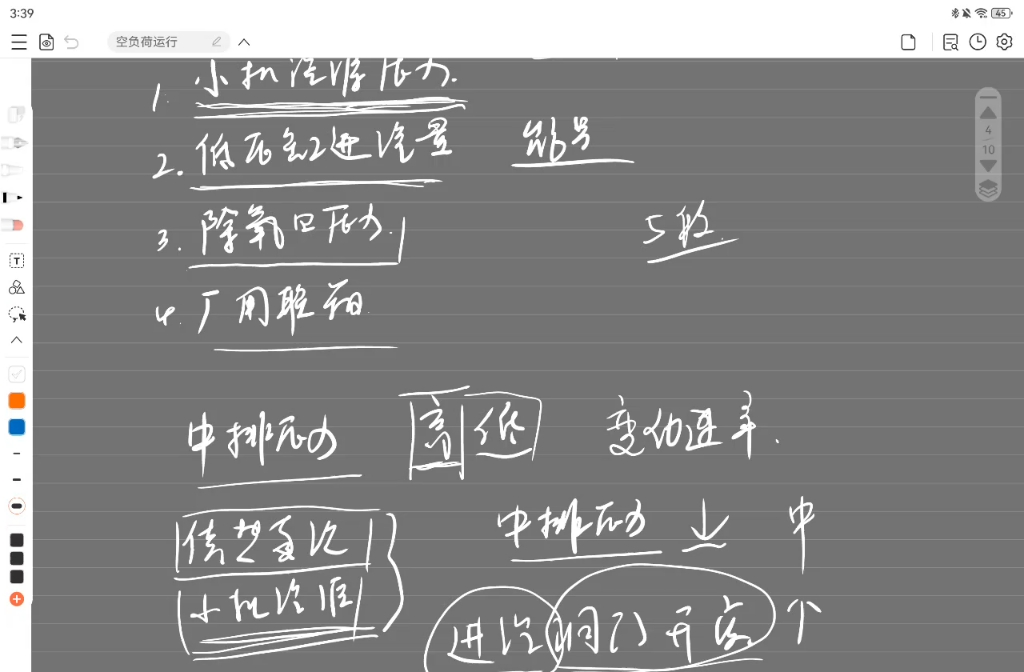 3:39
45
空负荷运行
4
10
1. 小机汽源压力.
2. 低压缸进汽量
3. 除氧口压力.
5段
4. 厂用联箱
中排压力 高 低 变动速率.
中排压力 ↓ 中
小机汽源
进汽 阀门 开度 个